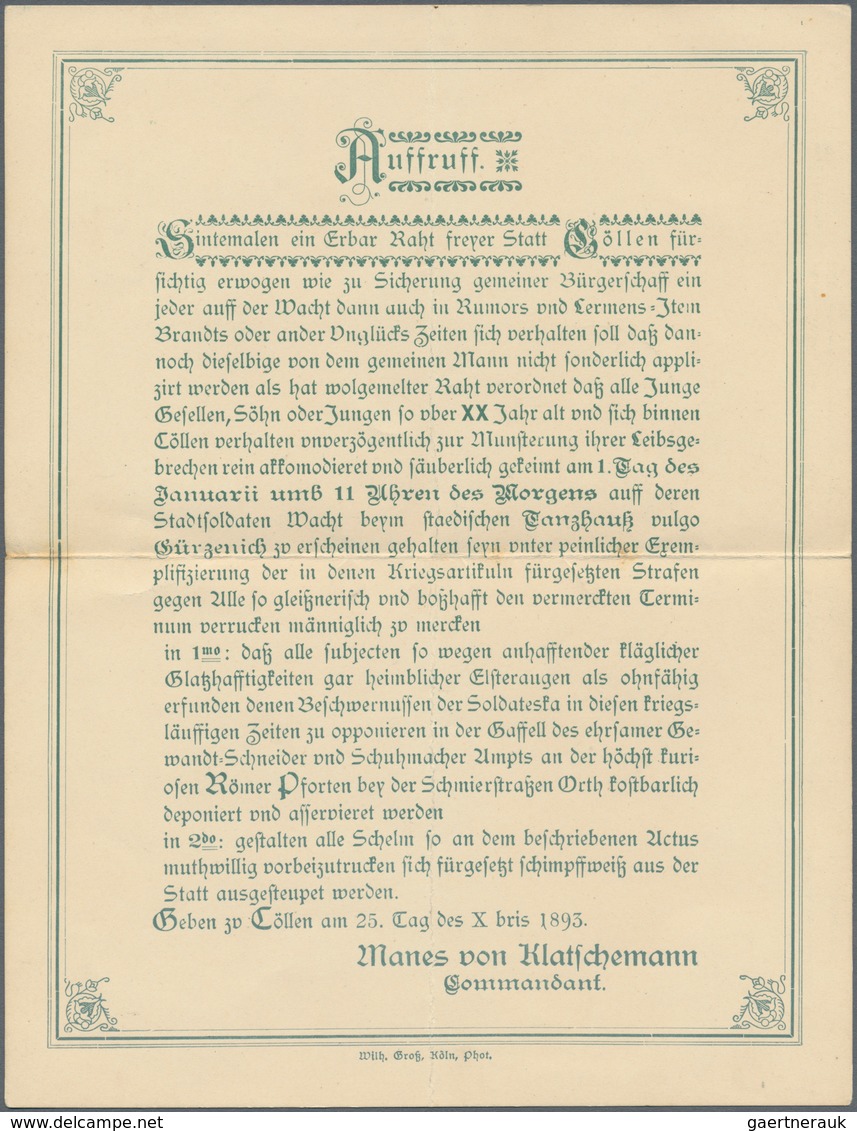 Auffruff.
Sintemalen ein Erbar Raht freyer Statt Cöllen für-
sichtig erwogen wie zu Sicherung gemeiner Bürgerschaff ein
jeder auff der Wacht dann auch in Rumors vnd Lermens-Item
Brandts oder ander Vnglücks Zeiten sich verhalten soll daß dan-
noch dieselbige von dem gemeinen Mann nicht sonderlich appli-
zirt werden als hat wolgemelter Raht verordnet daß alle Junge
Gesellen, Söhn oder Jungen so vber XX Jahr alt vnd sich binnen
Cöllen verhalten vnverzögentlich zur Munsterung ihrer Leibsge-
brechen rein akkomodieret vnd säuberlich gekeimt am 1. Tag des
Januarii umb 11 Uhren des Morgens auff deren
Stadtsoldaten Wacht beym staedischen Tanzhauß vulgo
Gürzenich zv erscheinen gehalten seyn vnter peinlicher Exem-
plifizierung der in denen Kriegsartikuln fürgesetzten Strafen
gegen Alle so gleißnerisch vnd boßhafft den vermerckten Termi-
num verrucken männiglich zv mercken
in 1mo: daß alle subjecten so wegen anhafftender kläglicher
Glatzhafftigkeiten gar heimblicher Elsteraugen als ohnfähig
erfunden denen Beschwernussen der Soldateska in diesen kriegs-
läuffigen Zeiten zu opponieren in der Gaffell des ehrsamer Ge-
wandt-Schneider vnd Schuhmacher Ampts an der höchst kuri-
osen Römer Pforten bey der Schmierstraßen Orth kostbarlich
deponiert vnd asservieret werden
in 2do: gestalten alle Schelm so an dem beschriebenen Actus
muthwillig vorbeizutrucken sich fürgesetzt schimpffweiß aus der
Statt ausgesteupet werden.
Geben zv Cöllen am 25. Tag des X bris 1893.
Manes von Klatschemann
Commandant.
Wilh. Groß, Köln, Phot.
delcampe.net
gaertnerauk